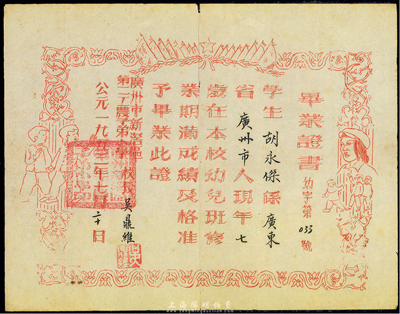 畢業證書
幼字第033號
學生胡永傑係廣東
省廣州市人現年七
歲在本校幼兒班修
業期滿成績及格准
予畢業此證
廣州市新
第二子弟學校校長吳鼎維
公元一九五三年七月二十日